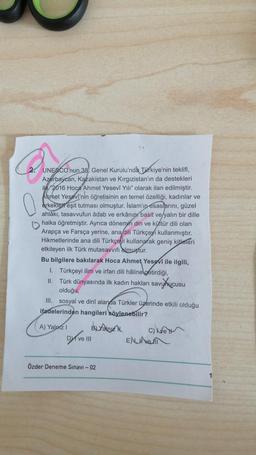 2. UNESCO'nun 38. Genel Kurulu'nda Türkiye'nin teklifi,
Azerbaycan, Kazakistan ve Kırgızistan'ın da destekleri
ile "2016 Hoca Ahmet Yesevî Yılı" olarak ilan edilmiştir.
Ahmet Yesevî'nin öğretisinin en temel özelliği, kadınlar ve
erkekleri eşit tutması olmuştur. İslam'ın esaslarını, güzel
ahlakı, tasavvufun âdab ve erkânını basit ve yalın bir dille
halka öğretmiştir. Ayrıca dönemin din ve kültür dili olan
Arapça ve Farsça yerine, ana dili Türkçeyi kullanmıştır.
Hikmetlerinde ana dili Türkçeyi kullanarak geniş kitleleri
etkileyen ilk Türk mutasavvıfı olmuştur.
Bu bilgilere bakılarak Hoca Ahmet Yesevî ile ilgili,
I. Türkçeyi ilim ve irfan dili hâline getirdiği,
II. Türk dünyasında ilk kadın hakları savunucusu
olduğu,
III. sosyal ve dinî alanda Türkler üzerinde etkili olduğu
ifadelerinden hangileri söylenebilir?
A) Yalnız I
B) Yalnız II
C) I ve II
D) I ve III
E) I, II ve III
Özder Deneme Sınavı – 02
1